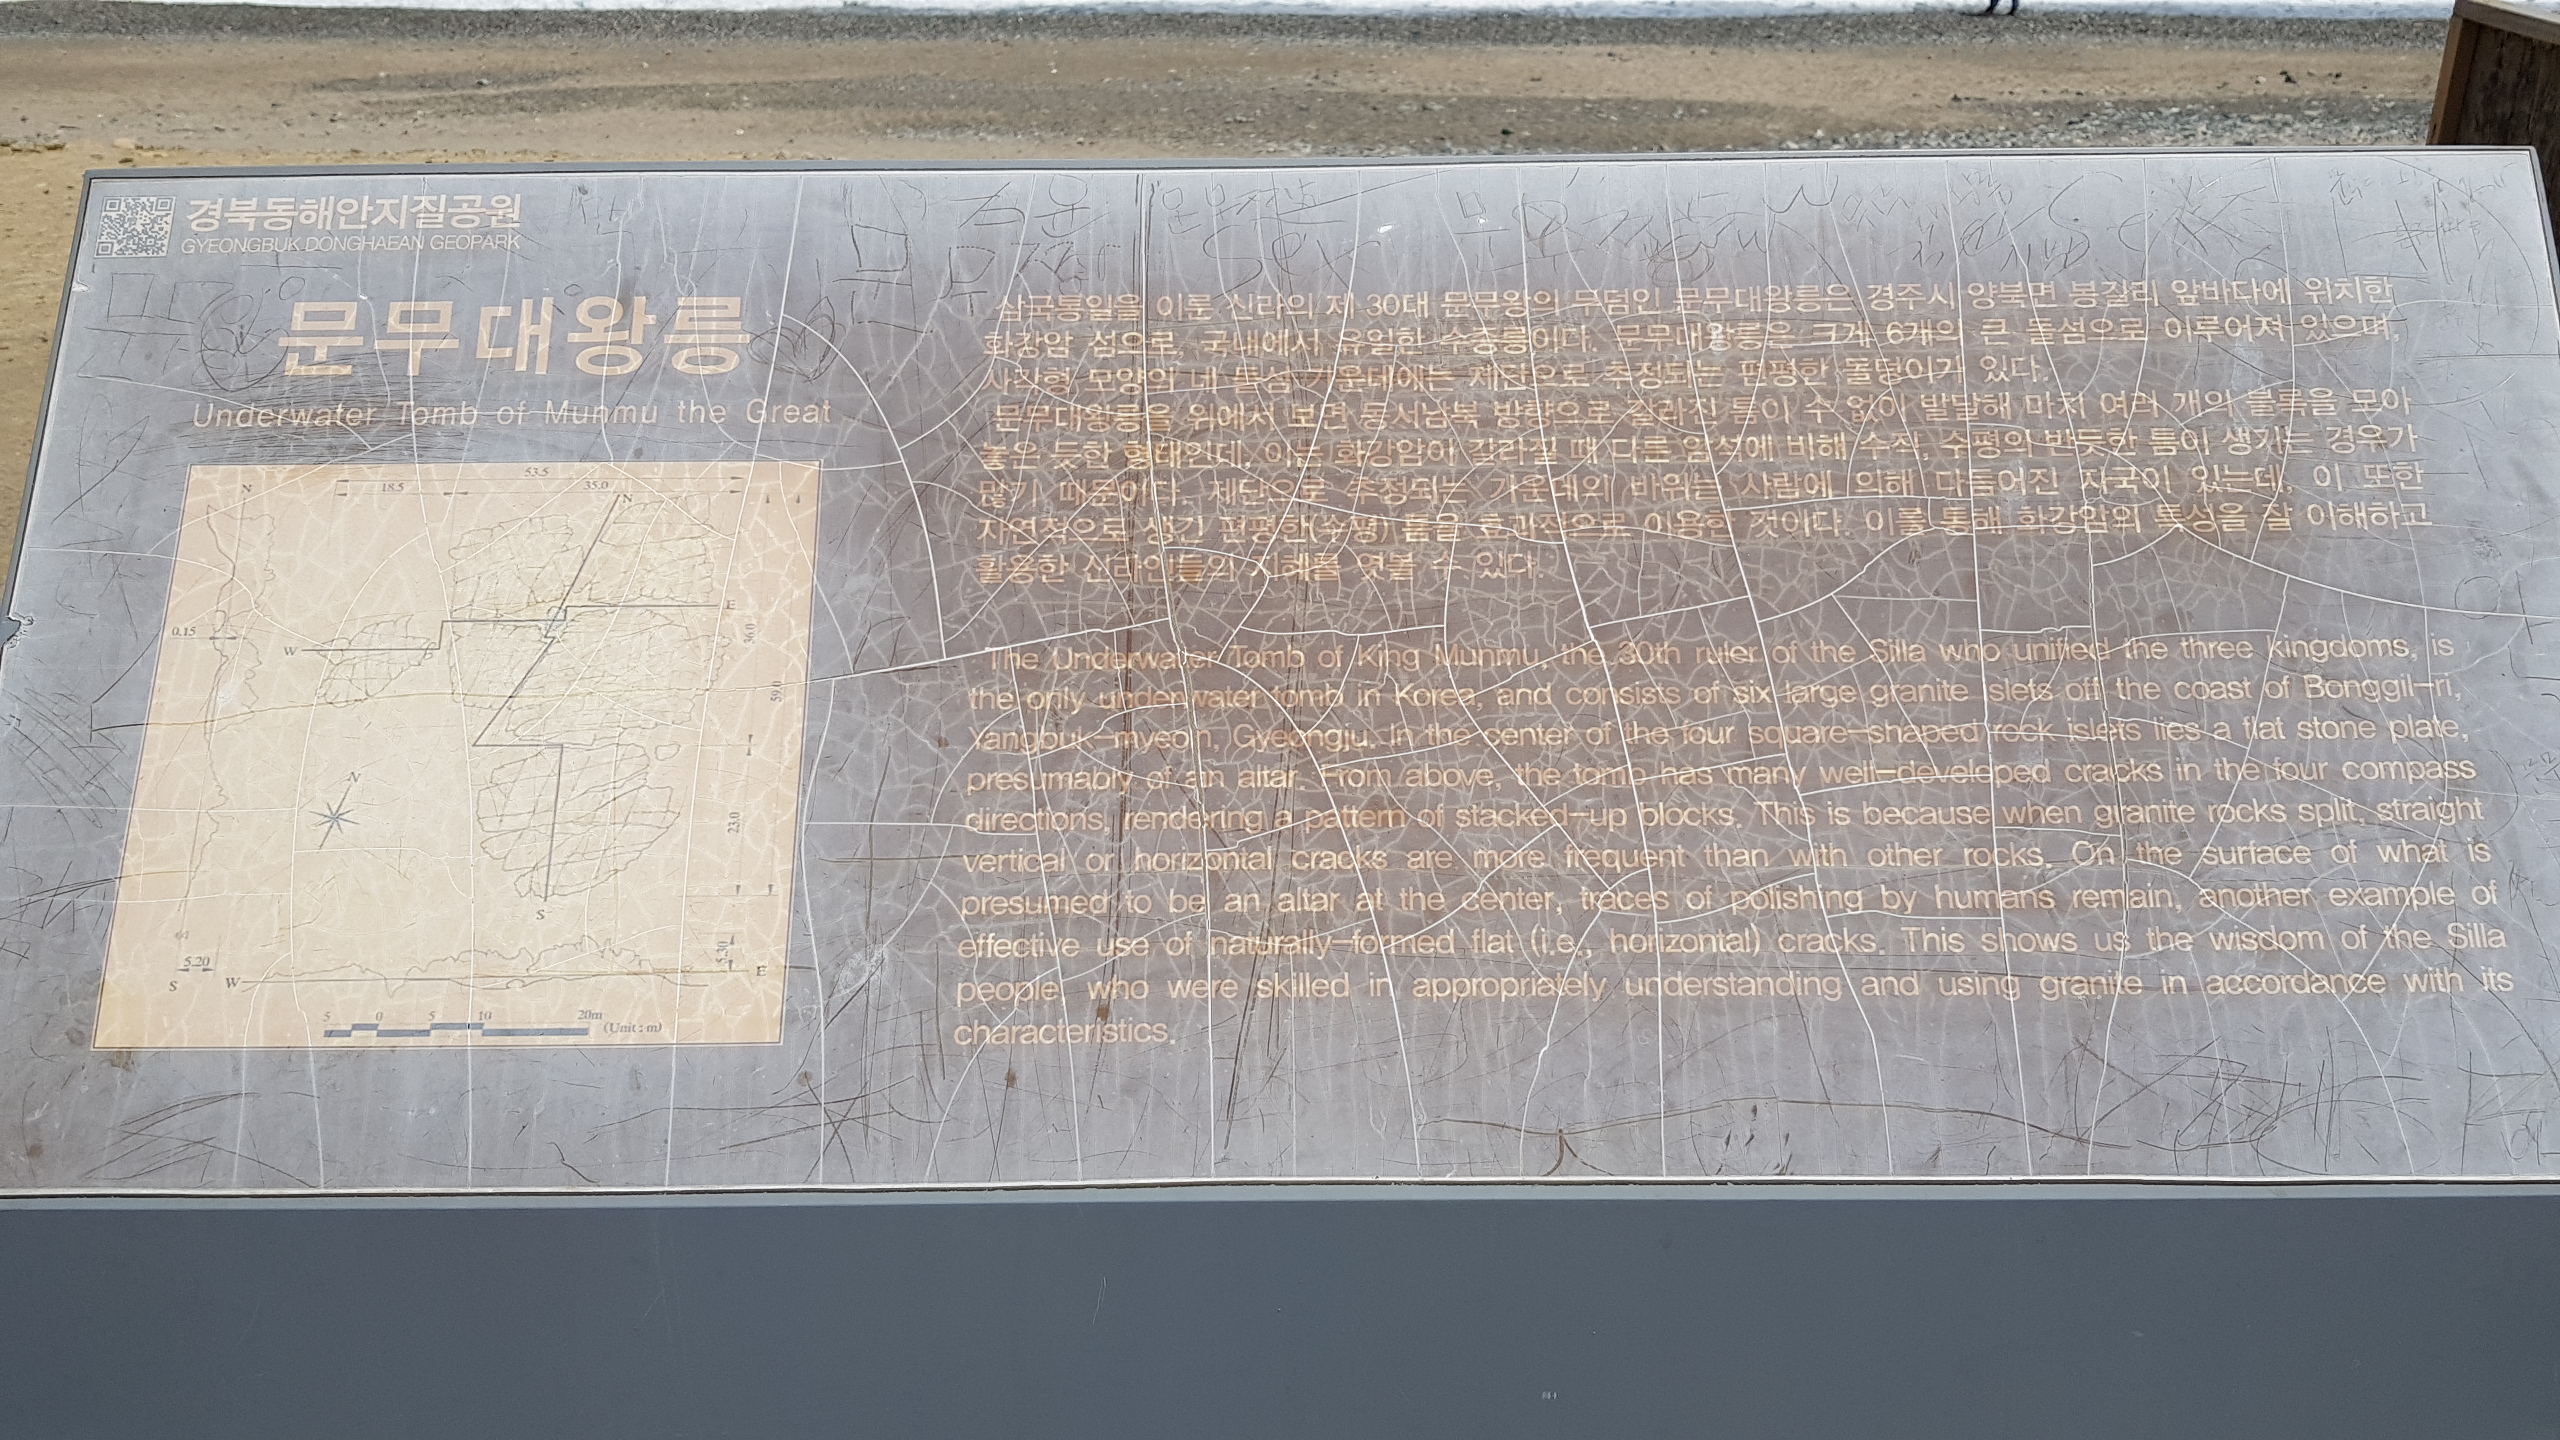 경북동해안지질공원
GYEONGBUK DONGHAEAN GEOPARK
문무대왕릉
Underwater Tomb of Munmu the Great
53.5
18.5
35.0
N
N
E
W
0.15
36.0
59.0
N
23.0
S
5.20
S
W
E
5.20
5 0 5 10 20m
(Unit : m)
삼국통일을 이룬 신라의 제 30대 문무왕의 무덤인 문무대왕릉은 경주시 양북면 봉길리 앞바다에 위치한
화강암 섬으로, 국내에서 유일한 수중릉이다. 문무대왕릉은 크게 6개의 큰 돌섬으로 이루어져 있으며,
사각형 모양의 네 돌섬 가운데에는 제단으로 추정되는 편평한 돌덩이가 있다.
문무대왕릉을 위에서 보면 동서남북 방향으로 갈라진 틈이 수 없이 발달해 마치 여러 개의 블록을 모아
놓은 듯한 형태인데, 이는 화강암이 갈라질 때 다른 암석에 비해 수직, 수평의 반듯한 틈이 생기는 경우가
많기 때문이다. 제단으로 추정되는 가운데의 바위는 사람에 의해 다듬어진 자국이 있는데, 이 또한
자연적으로 생긴 편평한(수평) 틈을 효과적으로 이용한 것이다. 이를 통해 화강암의 특성을 잘 이해하고
활용한 신라인들의 지혜를 엿볼 수 있다.
The Underwater Tomb of King Munmu, the 30th ruler of the Silla who unified the three kingdoms, is
the only underwater tomb in Korea, and consists of six large granite islets off the coast of Bonggil-ri,
Yangbuk-myeon, Gyeongju. In the center of the four square-shaped rock islets lies a flat stone plate,
presumably of an altar. From above, the tomb has many well-developed cracks in the four compass
directions, rendering a pattern of stacked-up blocks. This is because when granite rocks split, straight
vertical or horizontal cracks are more frequent than with other rocks. On the surface of what is
presumed to be an altar at the center, traces of polishing by humans remain, another example of
effective use of naturally-formed flat (i.e., horizontal) cracks. This shows us the wisdom of the Silla
people, who were skilled in appropriately understanding and using granite in accordance with its
characteristics.